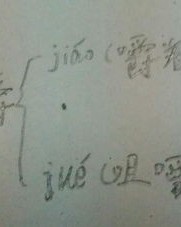 jiáo (嚼
jué (咀嚼